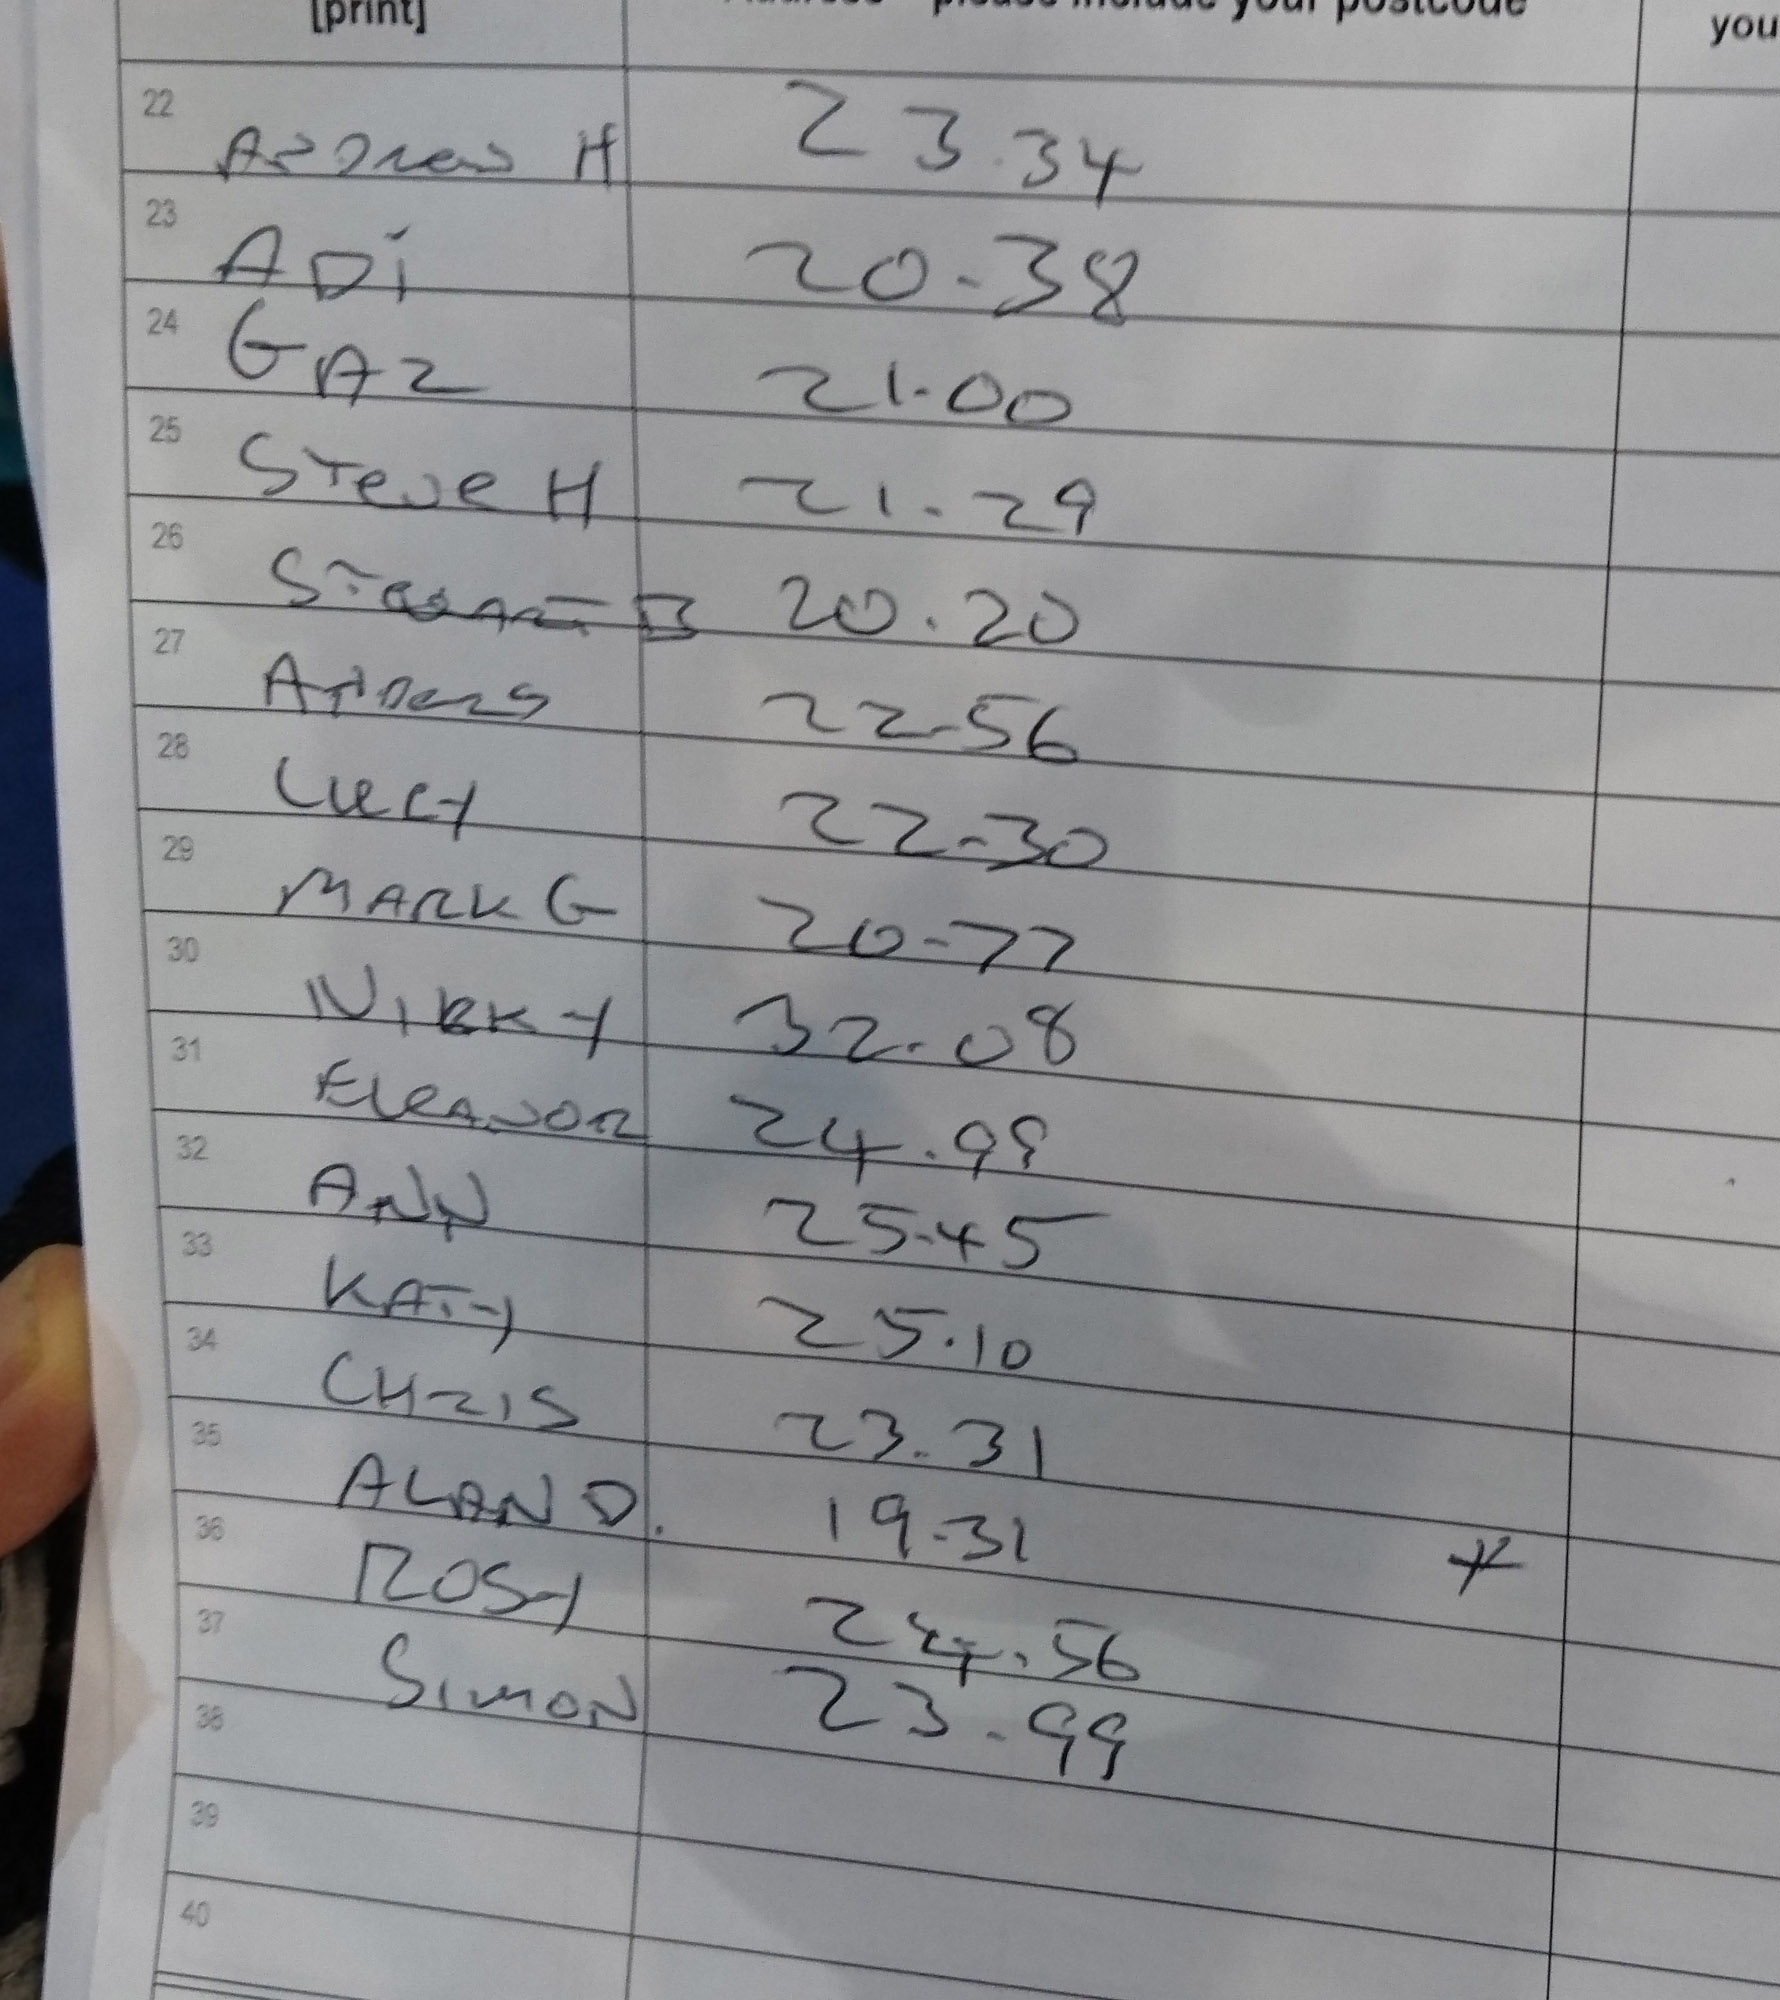 [print] Address - please include your postcode you
22 Andrew H 23.34
23 ADi 20-38
24 GAZ 21.00
25 Steve H 21.29
26 Stewart B 20.20
27 22-56
28 Lucy 22-30
29 MARK G 20-77
30 NIKKY 32.08
31 EleANOR 24.99
32 ANN 25.45
33 KATY 25.10
34 CHRIS 23.31
35 ALAN D. 19.31 *
36 ROSY 24.56
37 SIMON 23.99
38
39
40